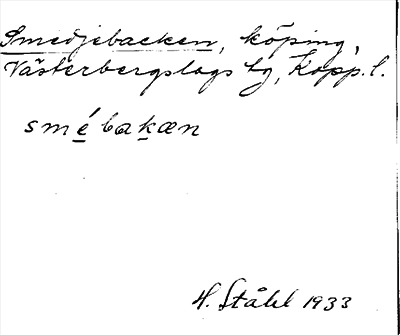 Smedjebacken, köping,
Västerbergslags tg, Kopp. l.
smébakæn
H. Ståhl 1933